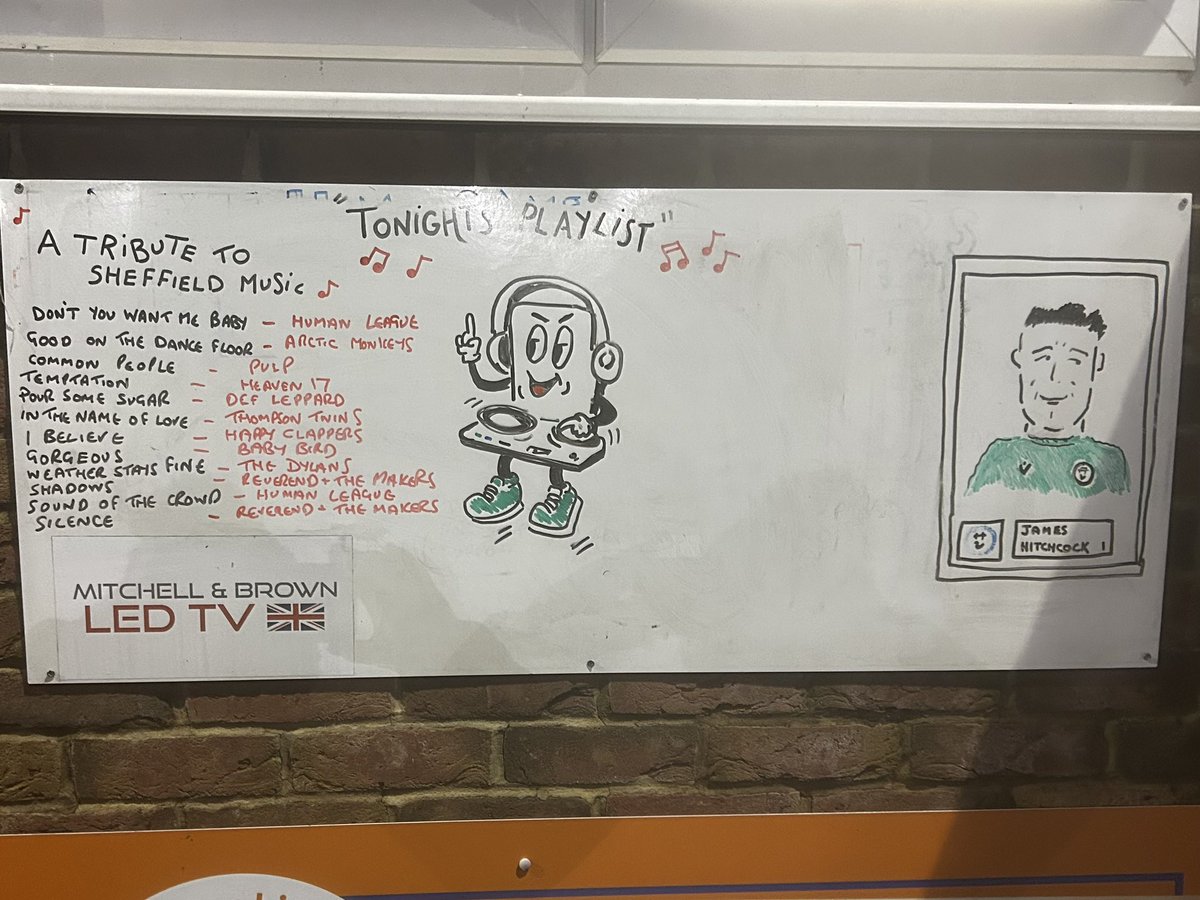 "TONIGHTS PLAYLIST"
A TRIBUTE TO
SHEFFIELD MUSIC
DON'T YOU WANT ME BABY - HUMAN LEAGUE
GOOD ON THE DANCE FLOOR - ARCTIC MONKEYS
COMMON PEOPLE - PULP
TEMPTATION - HEAVEN 17
POUR SOME SUGAR - DEF LEPPARD
IN THE NAME OF LOVE - THOMPSON TWINS
I BELIEVE - HAPPY CLAPPERS
GORGEOUS - BABY BIRD
WEATHER STAYS FINE - THE DYLANS
SHADOWS - REVEREND + THE MAKERS
SOUND OF THE CROWD - HUMAN LEAGUE
SILENCE - REVEREND + THE MAKERS
MITCHELL & BROWN
LED TV
JAMES
HITCHCOCK 1